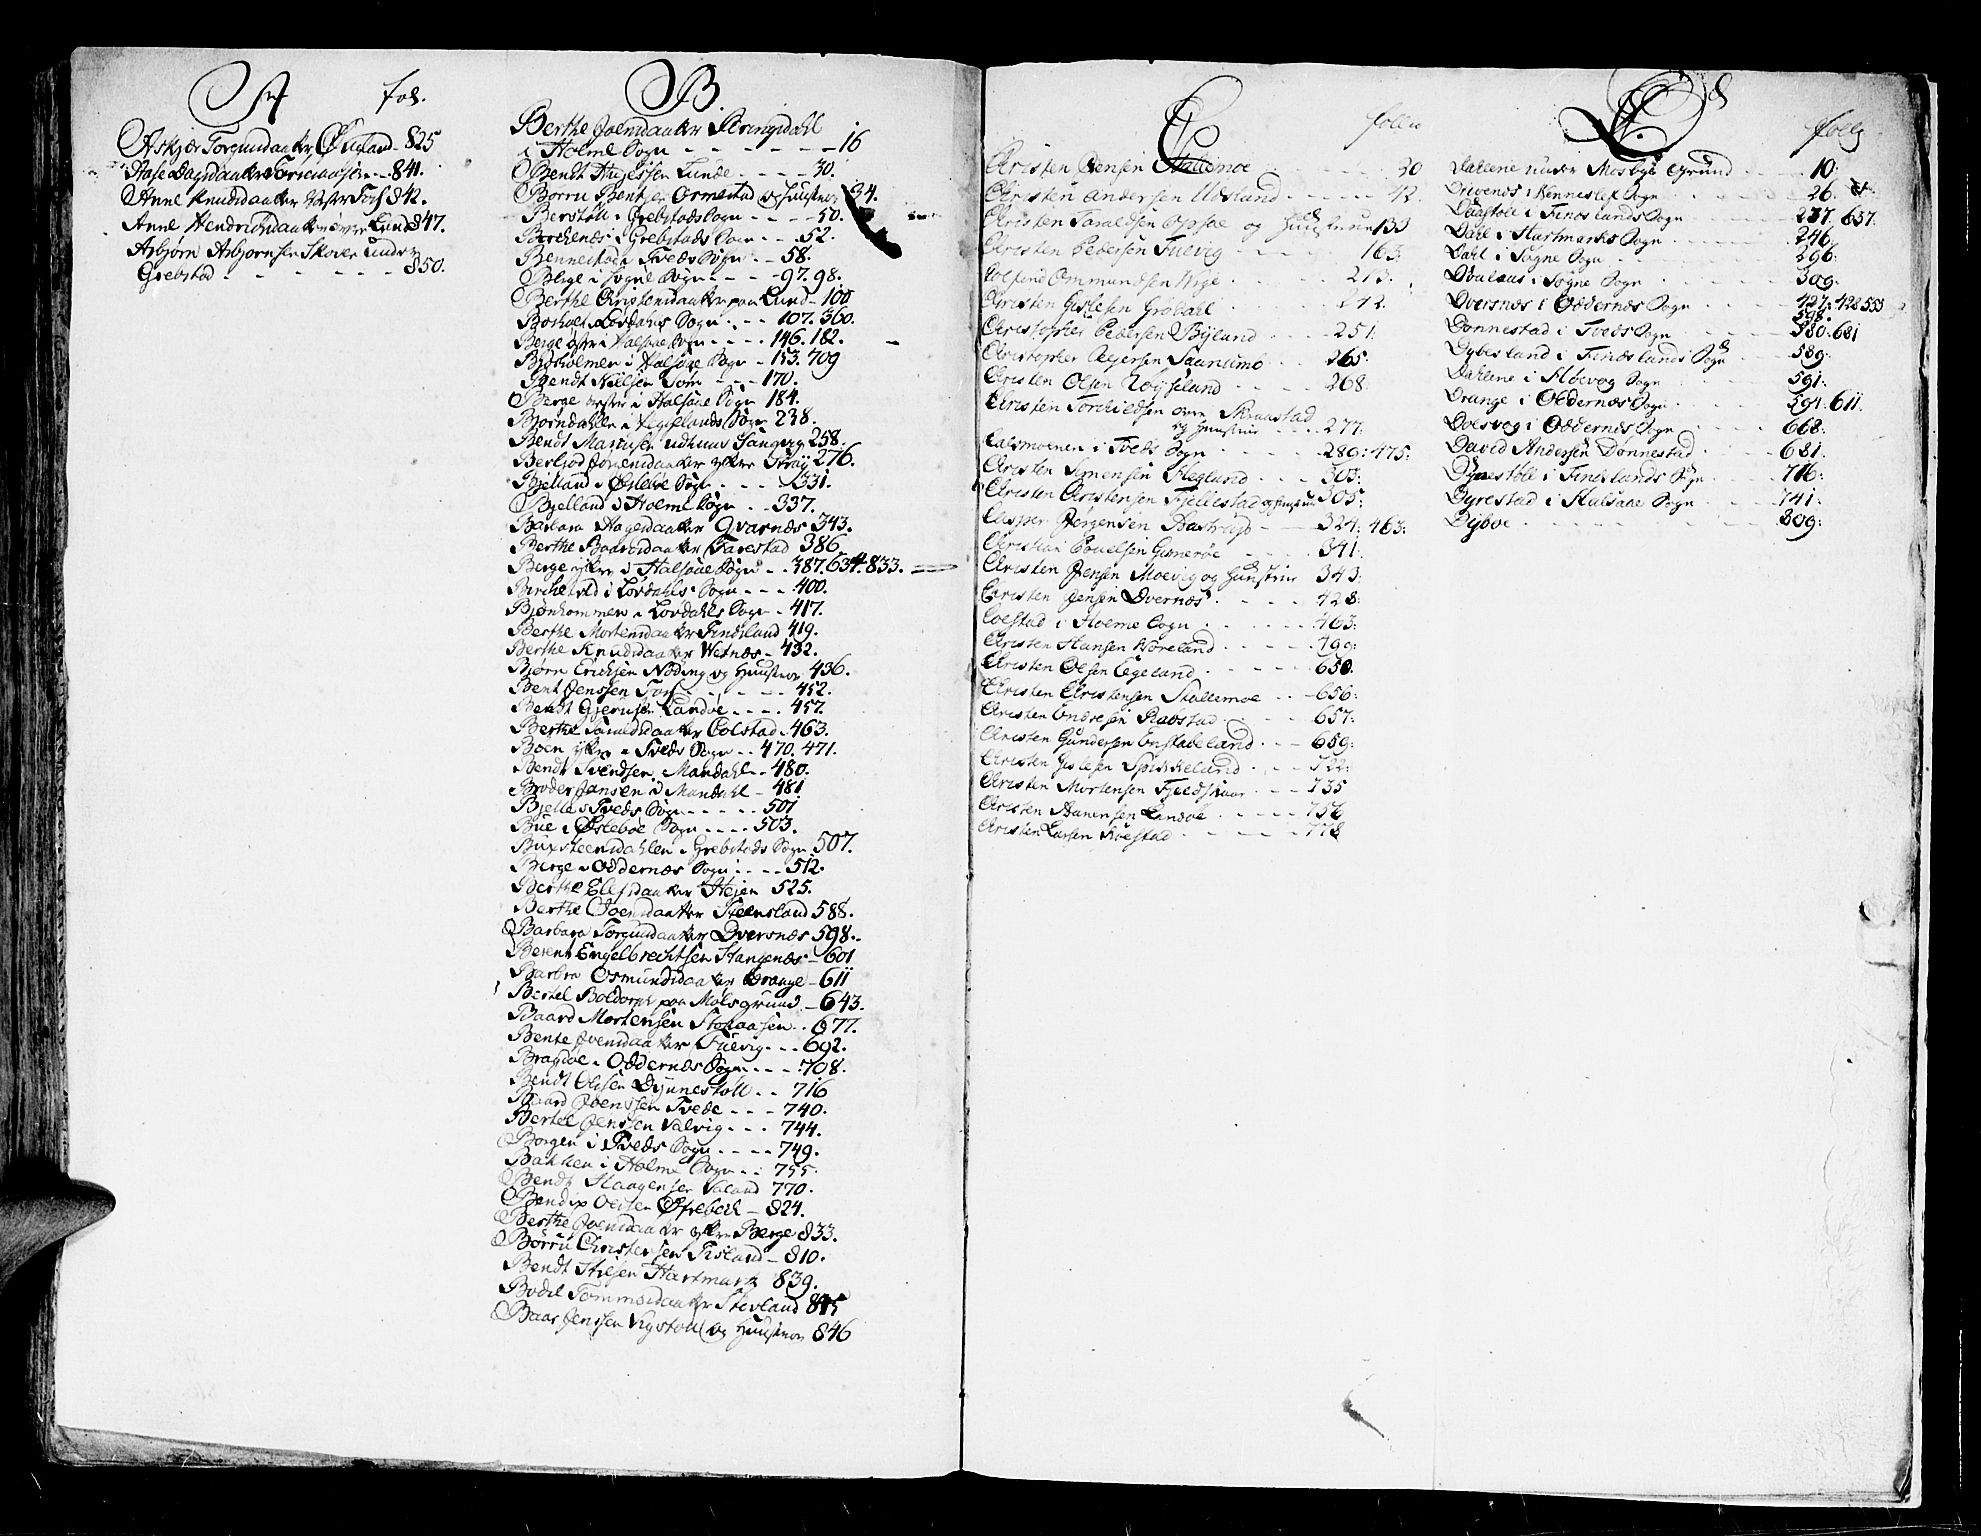 A fol.
Askjær Torgundsdaatter Øigland - 825
Aase Dagsdaatter - - - 841.
Anne Knudsdaatter Foss 842.
Anne Hendrichsdaatter øvre Lund 847.
Asbjørn Asbjørnsen Skoven under
Grebstad - - - - - - 850.
B.
Berthe Joensdaatter Stringsdahl
i Holme Sogn - - - - - - - 16
Bendt Lunde - - - - - 30.
Børru Bentsen Ormestad og Hustrue 34.
Berstøll i Grebstads Sogn - - - - 50.
Birchenes i Grebstads Sogn - - - 52.
Bennestad i Tveds Sogn - - - 58.
Berge i Sogne Sogn - - - - 97. 98.
Berthe Christensdaatter paa Lund - 100
Løvdahls Sogn - - - 107. 360.
Berge øvre i Halsaae Sogn - - - - 146. 182.
Bjørholmen i Halsaae Sogn - 153. 709
Bendt Nielsen Tom - - - 170.
Berge i Halsaae Sogn 184.
Bjørndahlen i Sogn 238.
Bendt Sangvig 258.
Berljød Jørgensdaatter ytre Strøy 276.
Bjelland i Øslebøe Sogn - - - - 331.
Bjelland i Holme Sogn - - 337.
Barbara Aagesdaatter Qvarnæs 343.
Berthe Baardsdaatter Farestad 386
Berge ytre i Halsaae Sogn - - 387. 634. 833.
Birkelid i Løvdahls Sogn - - - 400.
Bjønkammen i Løvdahls Sogn - 417.
Berthe Mortensdaatter Findsland 419.
Berthe Knudsdaatter Wetnæs - 432.
Bjørn Erichsen Nøding og Huustrue 436.
Bent Jenssen Foss - - - - - 452.
Bendt Landøe - - - - 457.
Berthe Taraldsdaatter Colstad - 463.
Boen ytre i Tveds Sogn - - 470. 471.
Bendt Svendsen Mandahl - - 480.
Broder Jansen i Mandahl - 481
Bjelle i Tveds Sogn - - - - - 501
Bue i Øslebøe Sogn - - - - 503.
Buxsteensdahlen i Grebstads Sogn 507.
Berge i Oddernæs Sogn - - - - 512.
Berthe Elefsdaatter Heien 525.
Berthe Joensdaatter Steensland 588.
Barbara Torgiusdaatter Dversnæs 598.
Berent Engelbrechtsen Stangenæs - 601
Barbra Osmundsdaatter Drange - 611
Bertel Boldorph paa Molsgrund - 643.
Baard Mortensen Stokaasen - . 677.
Bente Joensdaatter Fuevig - - - 692.
Bragdøe i Oddernæs Sogn - - - 708.
Bendt Olssen Dynnestøll - - 716
Baard Joenssen Tvede - - - 740.
Bertel Jenssen Valvig - - - 744.
Borgen i Tveds Sogn - - - - 749.
Bakken i Holme Sogn - - 755.
Bendt Haagensen Valand 770.
Bendix Olssen Øfrebøch - 824.
Berthe Joensdaatter ytre Berge 833.
Børru Christensen Fisland - 810.
Bendt Nielsen Hartmark 839.
Bodil Tommasdaatter Stevland 845
Baar Jenssen Vigstøll og Huustrue 846
C folio
Christen Jensen Stallemoe - - - 30
Christen Andersen Udsland - - - - - 42.
Christen Taraldsen Opsae og Huustrue 133
Christen Pedersen Fuevig - - - - 163.
Colfend Ommundsen Wige - - - - 213.
Christen Gislesen Grodahl - - - 242.
Christopher Pedersen Byland - - - 251.
Christopher Saanum - - - 265.
Christen Olsen Røyseland - - - - 268
Christen Torkieldsen øvre Skraastad
og Huustrue - - - 277.
Calsmoenen i Tveds Sogn - - - - 289: 475:
Christen Simensen Hegland - - - 303:
Christen Christensen Fjellestad og Huustrue 305:
Casper Jørgensen Bastrup - - - 324: 463:
Christian Povelsen Gumerøe - - - - 341
Christen Jensen Moevig og Huustrue 343:
Christen Jensen Dvernæs - - - - 428:
Coestad i Holme Sogn - - - - - 463:
Christen Hansen Woreland - - - - 499:
Christen Olsen Egeland - - - - 650.
Christen Christensen Stallemoe - - - 656:
Christen Endresen Raastad - - - - 657:
Christen Gundersen Enstabeland - - - 659:
Christen Gislesen Spikkeland - - - 722:
Christen Mortensen Fjeldskaar - - - 735
Christen Aanensen Landøe - - - - - 756
Christen Larsen Koestad - - - - - 778
D folio
Dahlene under Mosbye Grund - - - - 10:
Drivenes i Vennesler Sogn - - - - - 26
Daastøll i Findslands Sogn - - - - 237. 657.
Dahl i Hartmarks Sogn - - - - - 246.
Dahl i Sogne Sogn - - - - - - 296.
Sogne Sogn - - - - - 309.
Dversnæs i Oddernæs Sogn - - - - 427: 428 553
598:
Dønnestad i Tveds Sogn - - - - 580: 681
Dybesland i Findslands Sogn - - - 589:
Dahlene i Høevog Sogn - - - - 591:
Drange i Oddernæs Sogn - - - - 594: 611:
Dolsvog i Oddernæs Sogn - - - - 668:
David Andersen Dønnestad - - - - 681:
Dynestøll i Findslands Sogn - - - 716:
Dyrestad i Halsaae Sogn - - - - 741:
Dybøe - - - - - - - - - 809: